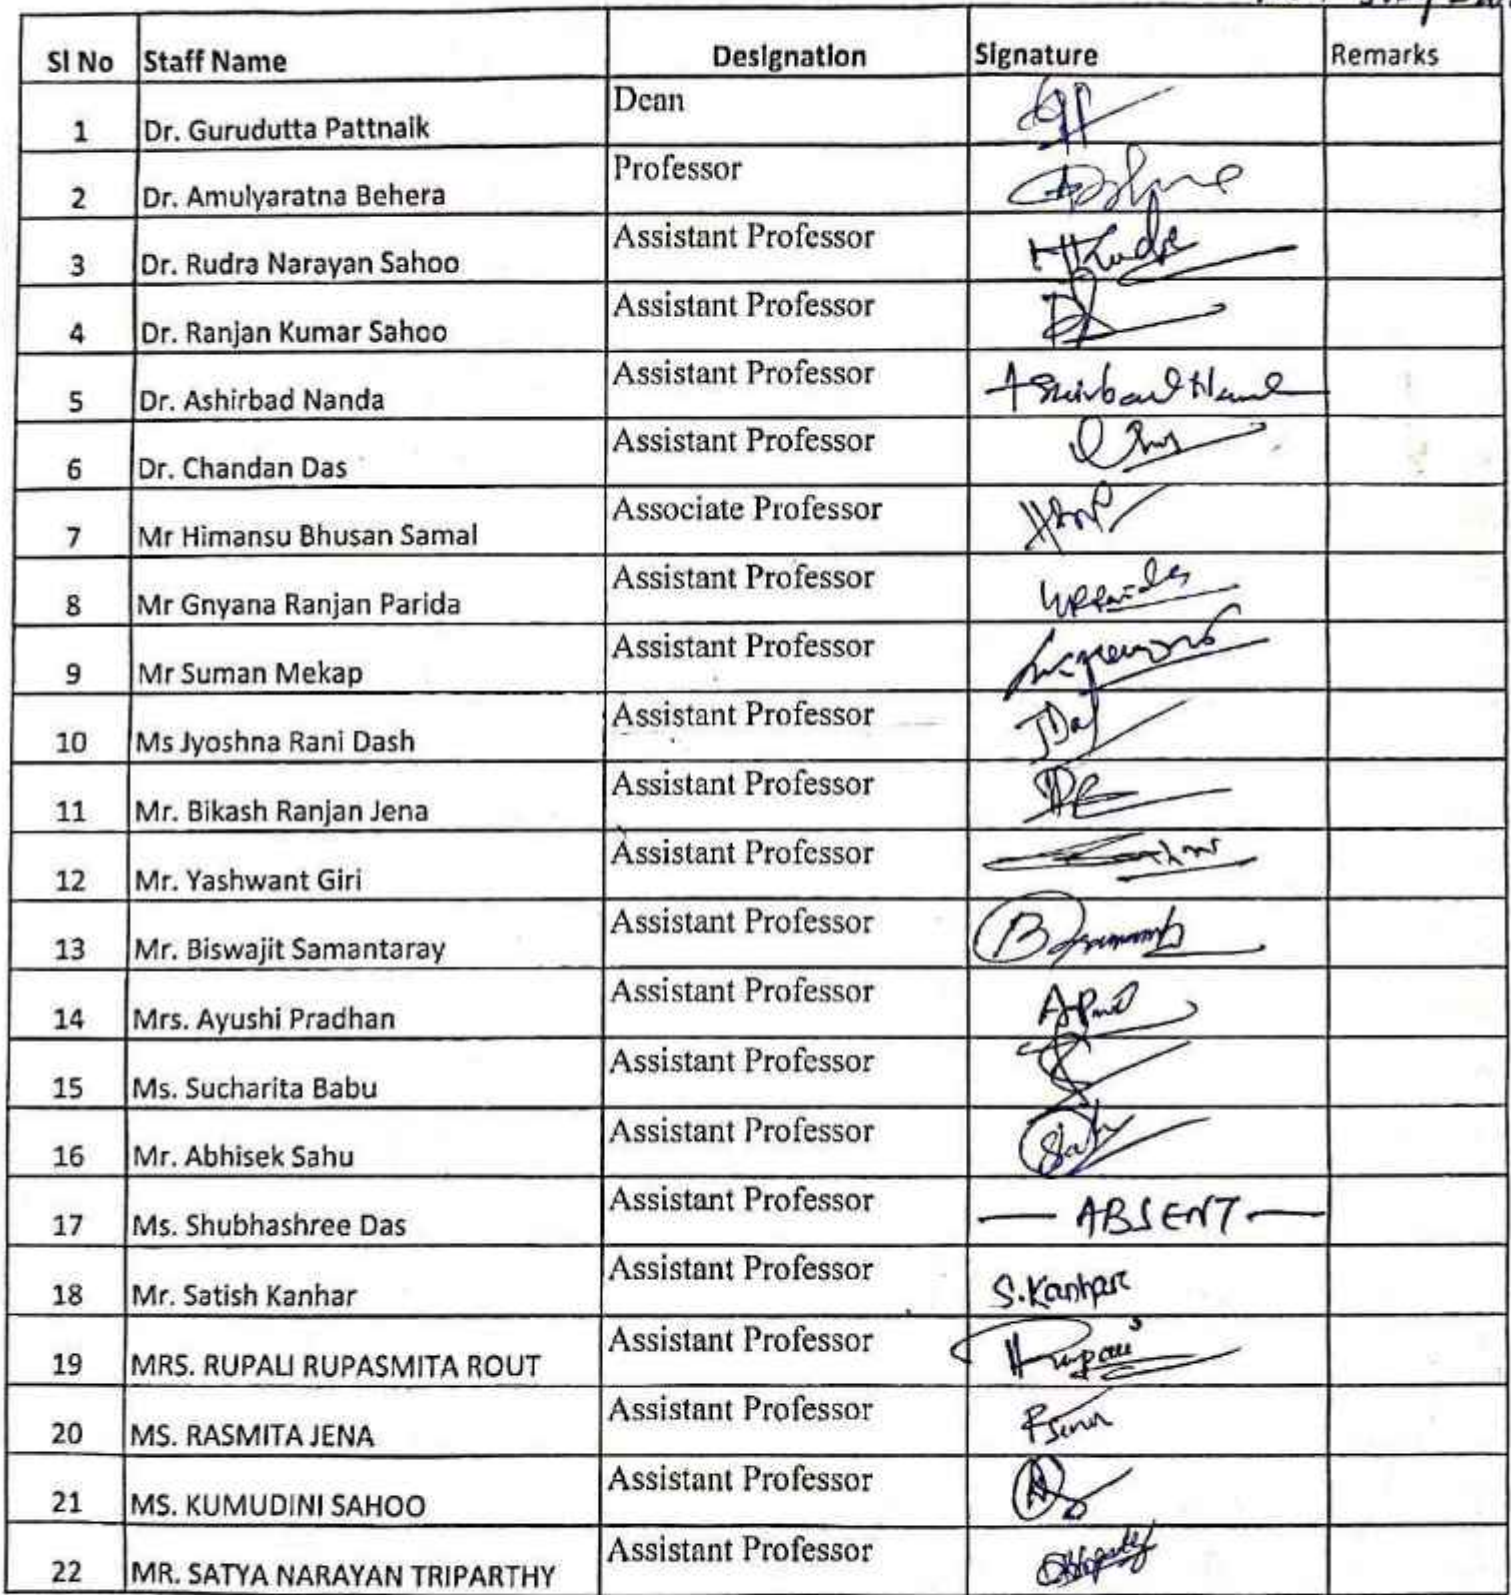 Sl No Staff Name Designation Signature Remarks
1 Dr. Gurudutta Pattnaik Dean
2 Dr. Amulyaratna Behera Professor
3 Dr. Rudra Narayan Sahoo Assistant Professor
4 Dr. Ranjan Kumar Sahoo Assistant Professor
5 Dr. Ashirbad Nanda Assistant Professor
6 Dr. Chandan Das Assistant Professor
7 Mr Himansu Bhusan Samal Associate Professor
8 Mr Gnyana Ranjan Parida Assistant Professor
9 Mr Suman Mekap Assistant Professor
10 Ms Jyoshna Rani Dash Assistant Professor
11 Mr. Bikash Ranjan Jena Assistant Professor
12 Mr. Yashwant Giri Assistant Professor
13 Mr. Biswajit Samantaray Assistant Professor
14 Mrs. Ayushi Pradhan Assistant Professor
15 Ms. Sucharita Babu Assistant Professor
16 Mr. Abhisek Sahu Assistant Professor
17 Ms. Shubhashree Das Assistant Professor — ABSENT —
18 Mr. Satish Kanhar Assistant Professor S.Kanhar
19 MRS. RUPALI RUPASMITA ROUT Assistant Professor
20 MS. RASMITA JENA Assistant Professor
21 MS. KUMUDINI SAHOO Assistant Professor
22 MR. SATYA NARAYAN TRIPARTHY Assistant Professor